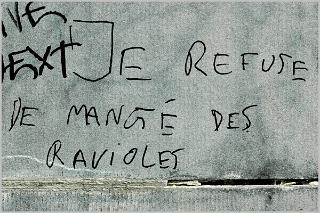 JE REFUSE
DE MANGÉ DES
RAVIOLES